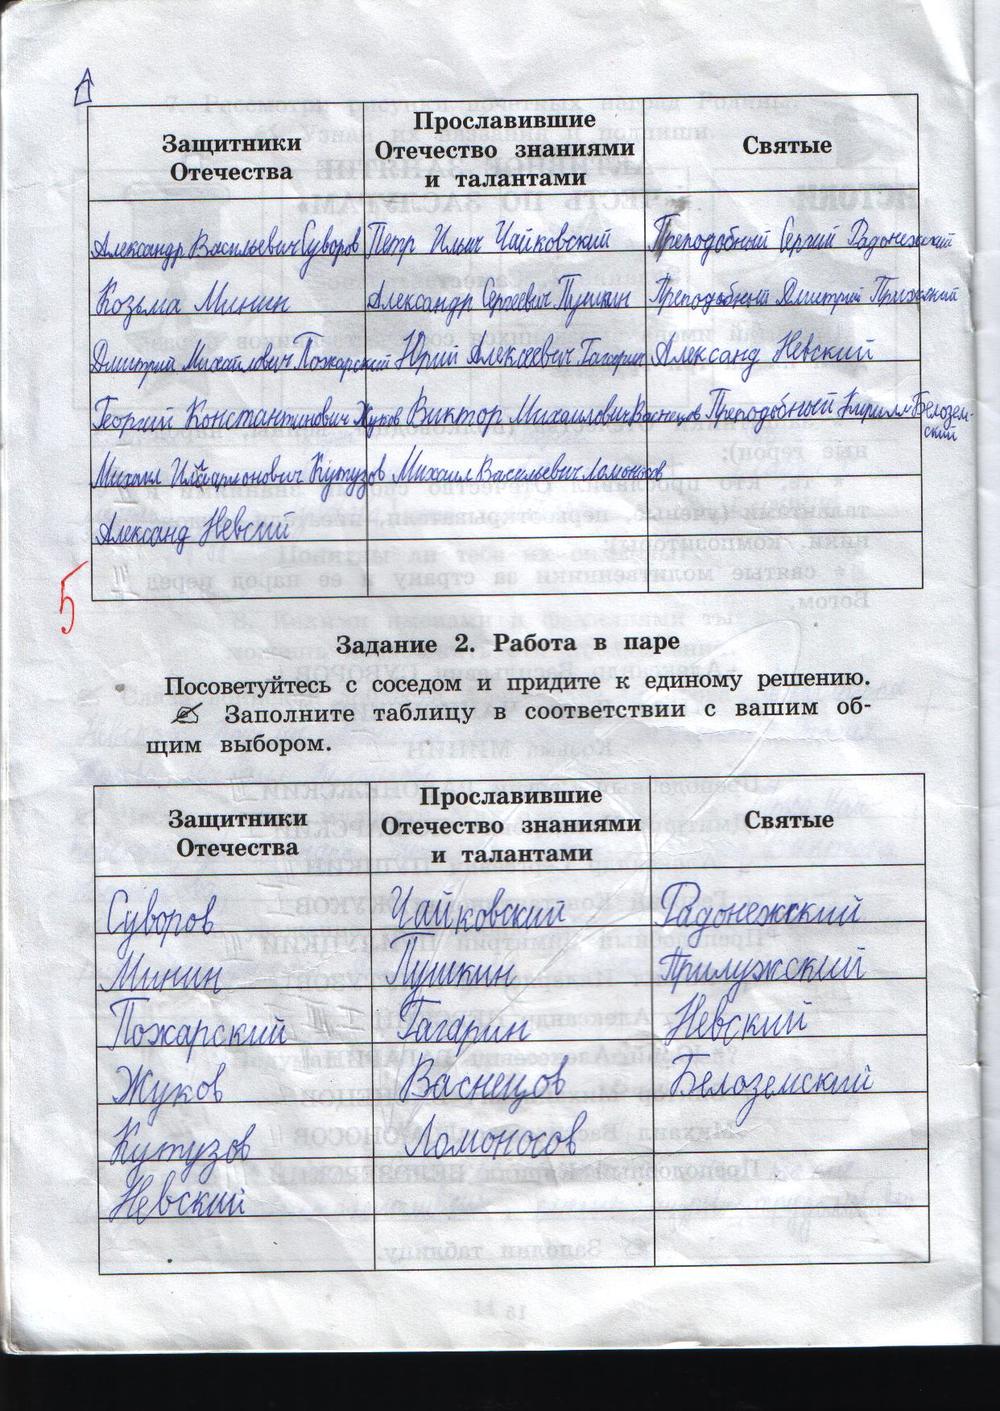 Защитники Отечества
Прославившие Отечество знаниями и талантами
Святые
Александр Васильевич Суворов Петр Ильич Чайковский Преподобный Сергий Радонежский
Козьма Минин Александр Сергеевич Пушкин Преподобный Дмитрий
Дмитрий Михайлович Пожарский Юрий Алексеевич Гагарин Александ Невский
Георгий Константинович Жуков Виктор Михаилович Васнецов Преподобный Кирилл Белоземский
Михаил Кутузов Михаил Васильевич Ломоносов
Александ Невсий
5
Задание 2. Работа в паре
Посоветуйтесь с соседом и придите к единому решению.
Заполните таблицу в соответствии с вашим об-
щим выбором.
Защитники Отечества
Прославившие Отечество знаниями и талантами
Святые
Суворов Чайковский Радонежский
Минин Пушкин Прилужский
Пожарский Гагарин Невский
Жуков Васнецов Белоземский
Кутузов Ломоносов
Невский